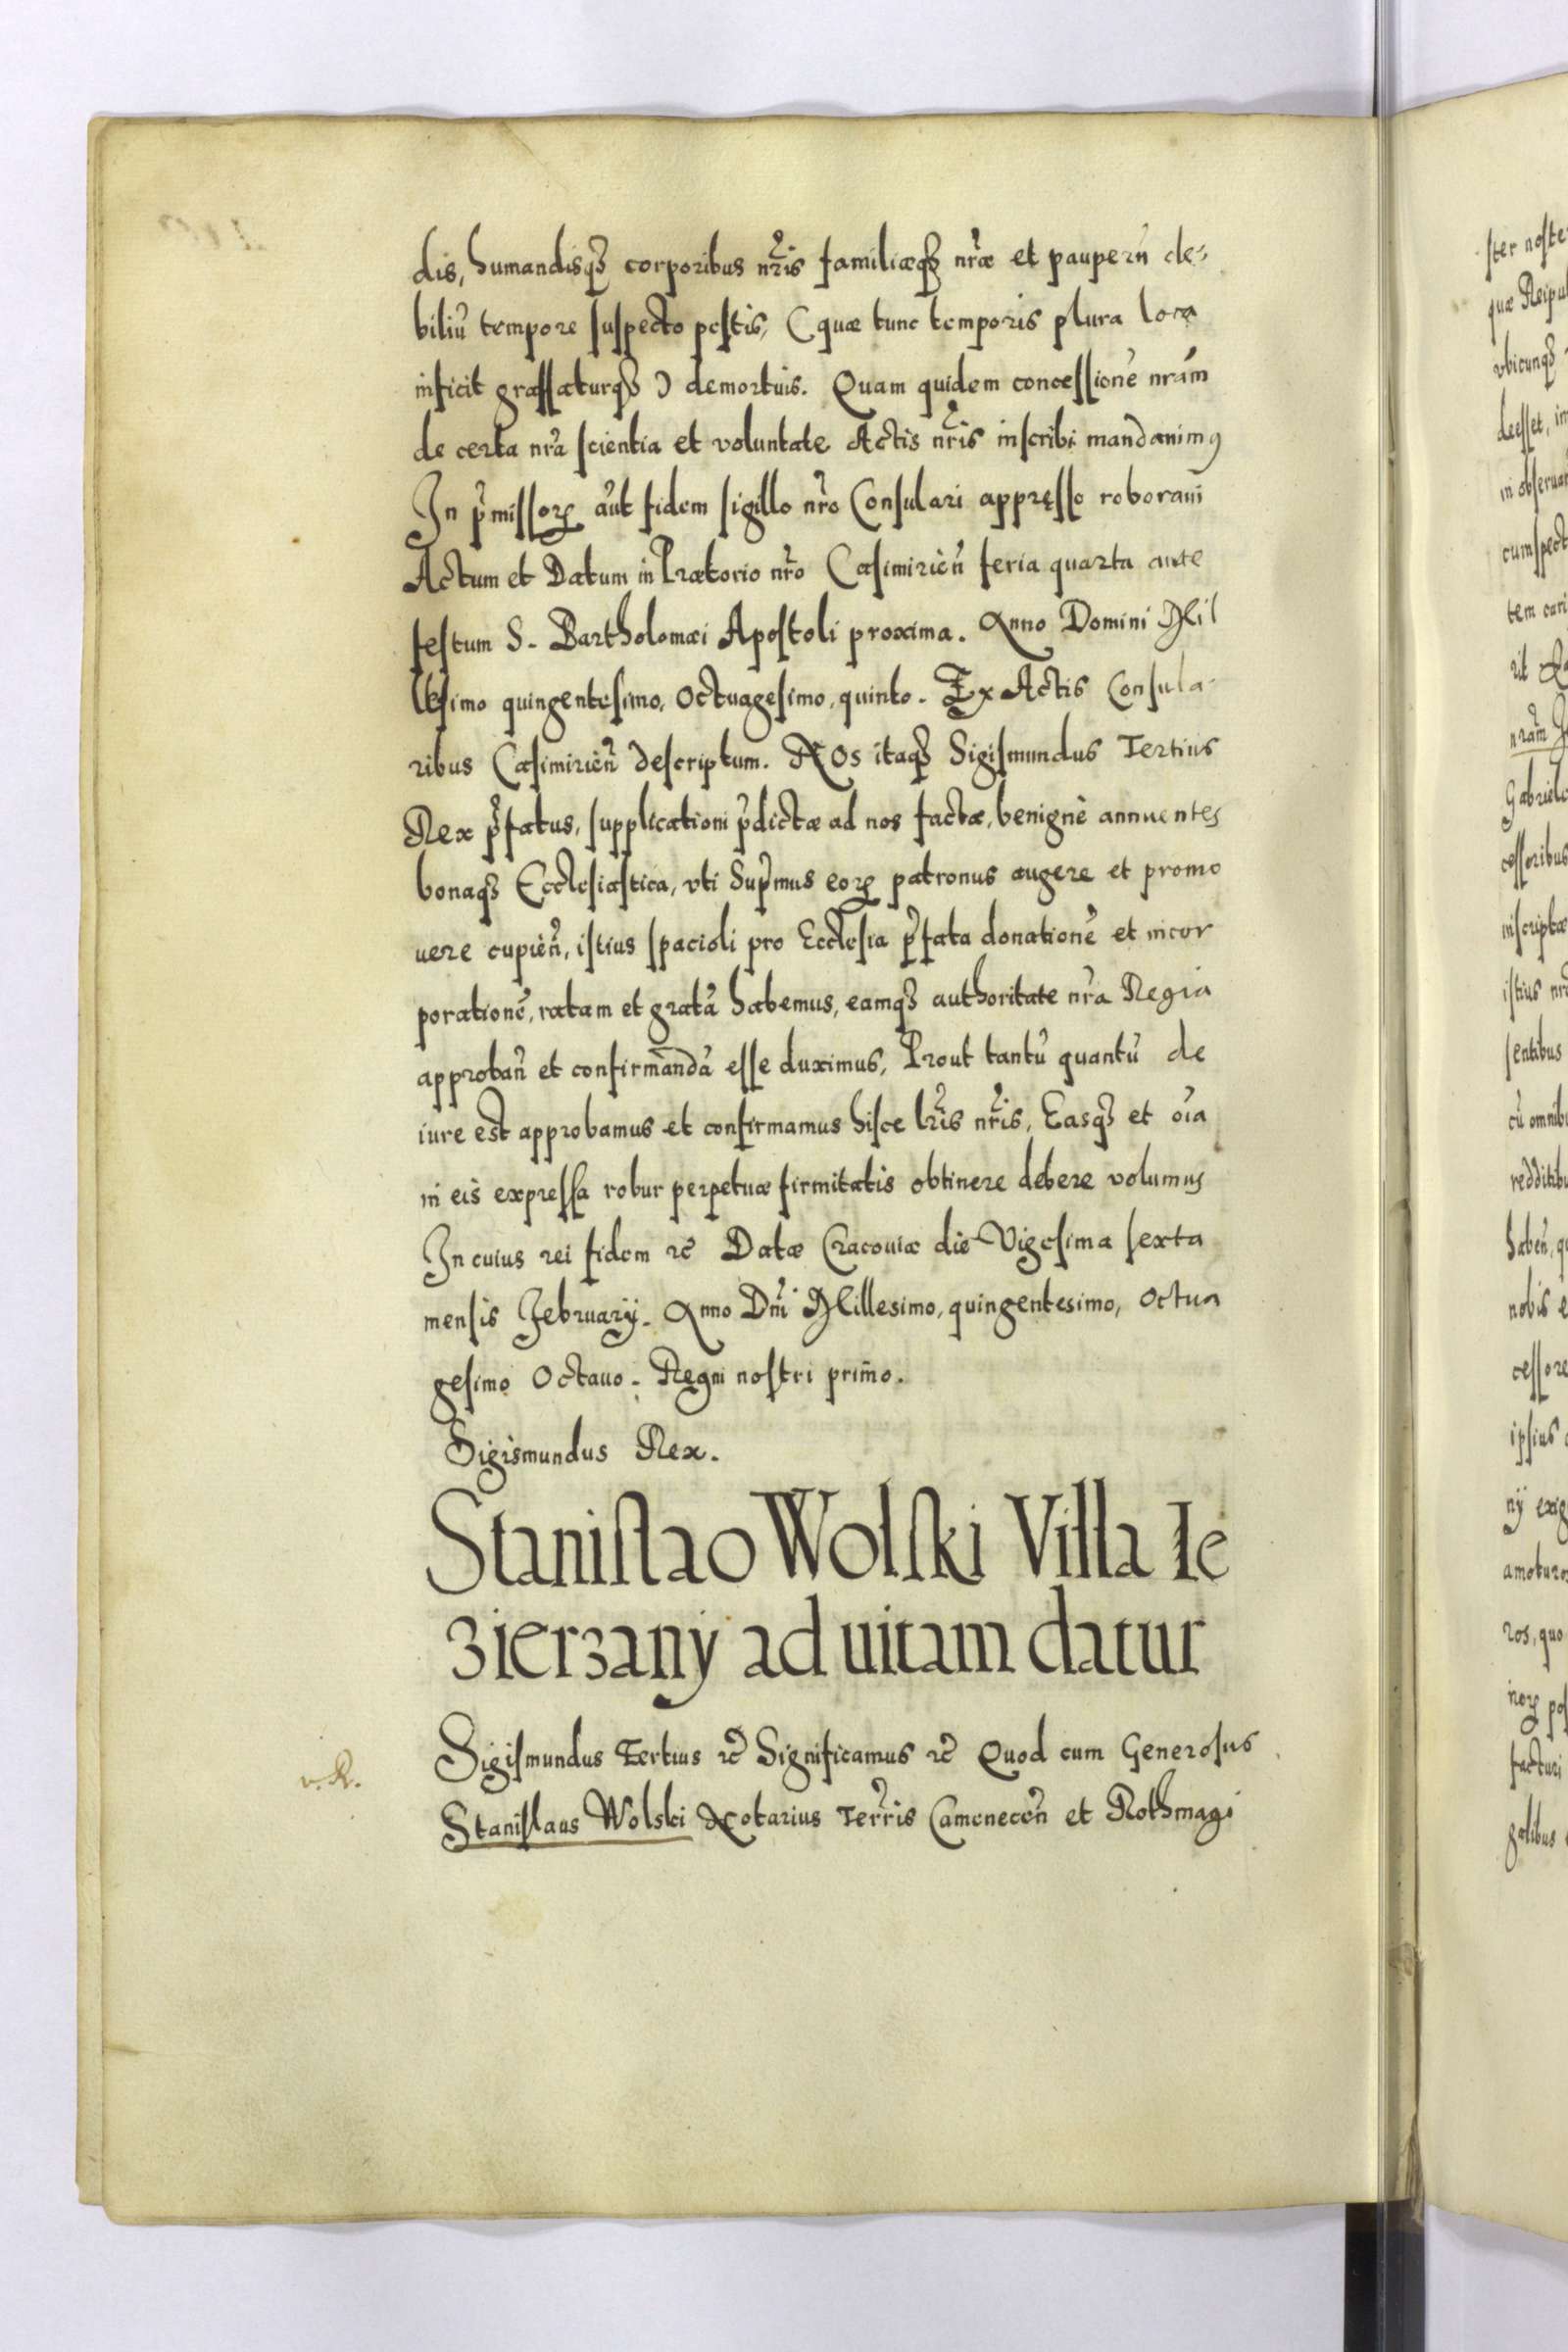 dis, humandisqȝ corporibus nr̃is familiæqȝ nr̃æ et pauperũ de-
biliũ tempore suspecto pestis, (quæ tunc temporis plura loca
inficit grassaturqȝ) demortuis. Quam quidem concessionẽ nrãm
de certa nr̃a scientia et voluntate Actis nr̃is inscribi mandauimꝯ
In p̃missorꝝ aũt fidem sigillo nr̃o Consulari appręsso roboraui
Actum et Datum in Prætorio nr̃o Casimirieñ feria quarta ante
festum S. Bartholomæi Apostoli proxima. Anno Domini Mil
lesimo quingentesimo, Octuagesimo, quinto. Ex Actis Consula-
ribus Casimirieñ descriptum. NOs itaqȝ Sigismundus Tertius
Rex p̃fatus, supplicationi p̃dictæ ad nos factæ, benignè annuentes
bonaqȝ Ecclesiastica, vti Sup̃mus eorꝝ patronus augere et promo
uere cupieñ, istius spacioli pro Ecclesia p̃fata donationẽ et incor
porationẽ, ratam et gratã habemus, eamqȝ authoritate nr̃a Regia
approbañ et confirmandã esse duximus, Prout tantũ quantũ de
iure est approbamus et confirmamus hisce lr̃is nr̃is, Easqȝ et oĩa
in eis expressa robur perpetuæ firmitatis obtinere debere volumus
In cuius rei fidem ꝛc̃ Datæ Cracouiæ die Vigesima sexta
mensis February. Anno Dñi Millesimo, quingentesimo, Octua
gesimo Octauo. Regni nostri primo.
Sigismundus Rex.
Stanislao Wolski Villa Ie
zierzany ad uitam datur
Sigismundus Tertius ꝛc̃ Significamus ꝛc̃ Quod cum Generosus
v. R.
Stanislaus Wolski Notarius Terr̃is Cameneceñ et Rothmagi